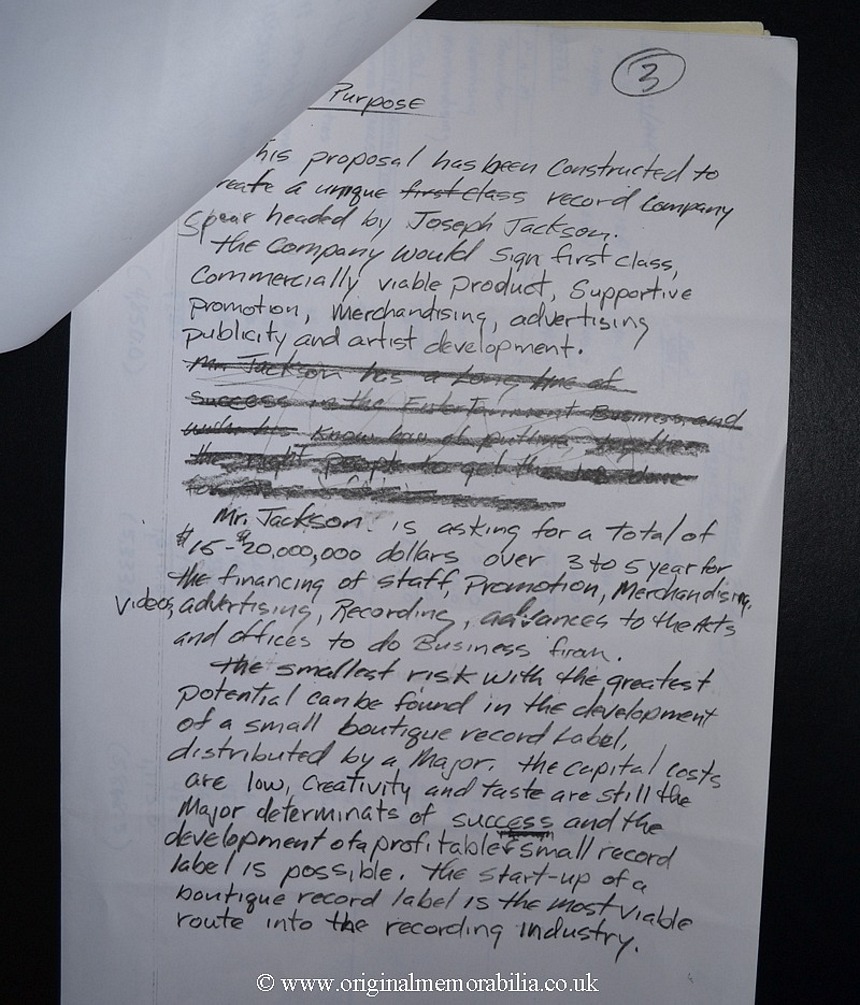 3
Purpose
his proposal has been Constructed to
reate a unique first class record Company
Spear headed by Joseph Jackson.
the Company would sign first class,
Commercially viable product, Supportive
promotion, Merchandising, advertising
publicity and artist development.
Mr. Jackson has a Long line of
Success in the Entertainment Business, and
with his know how of putting together
the right people to get the job done
Mr. Jackson is asking for a total of
$15-$20,000,000 dollars over 3 to 5 year for
the financing of staff, Promotion, Merchandising,
Videos, advertising, Recording, advances to the Acts
and offices to do Business from.
the smallest risk with the greatest
potential can be found in the development
of a small boutique record Label,
distributed by a Major. the capital costs
are low, Creativity and taste are still the
Major determinats of success and the
development of a profitable small record
label is possible. the start-up of a
boutique record label is the most viable
route into the recording industry.
© www.originalmemorabilia.co.uk